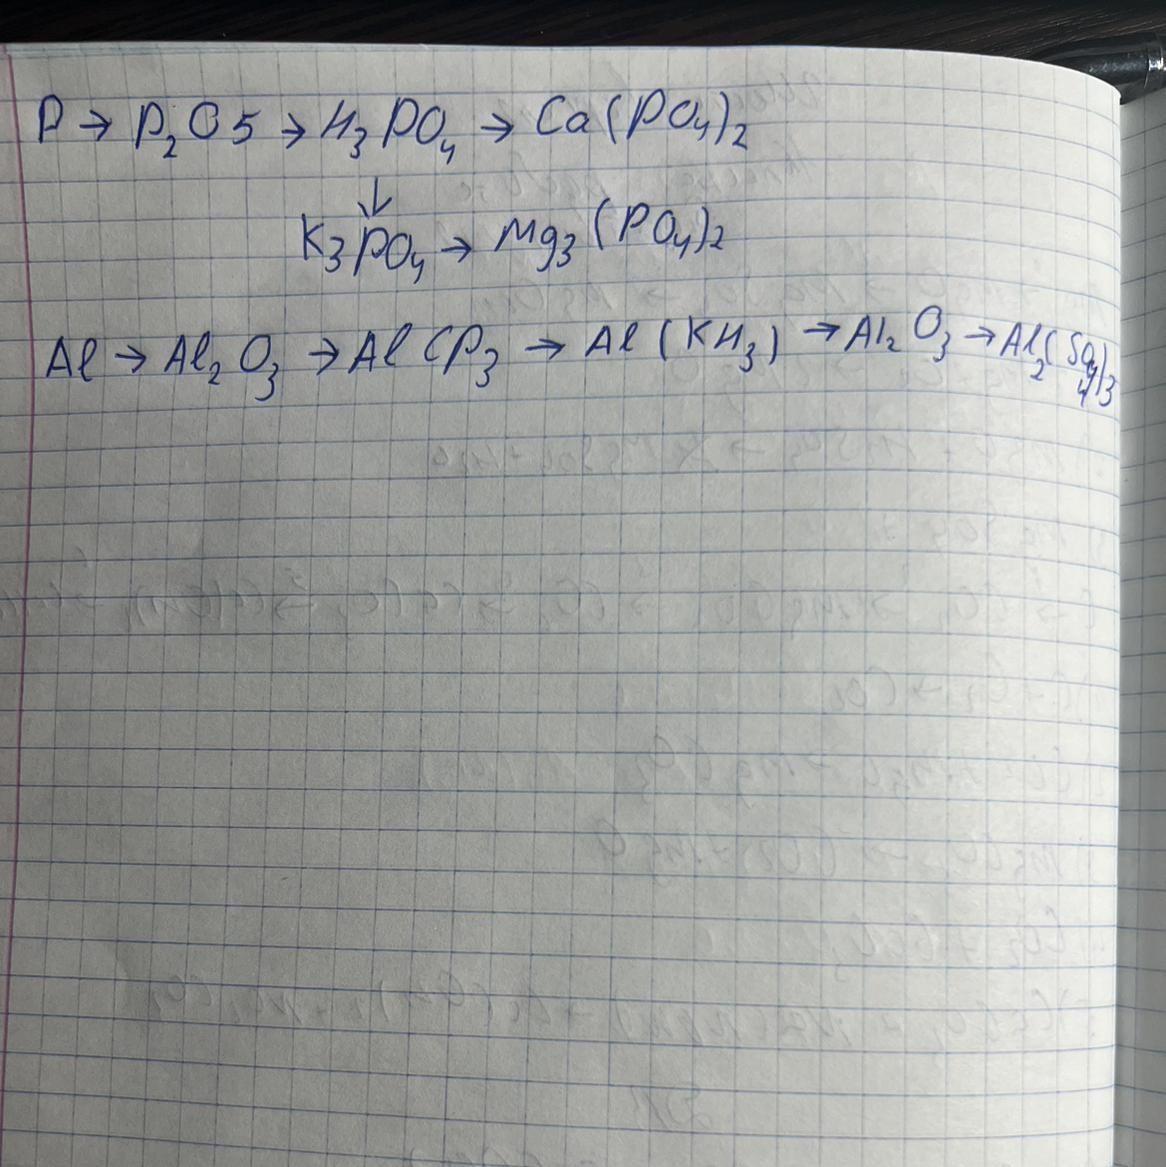 P → P₂O5 → H₃PO₄ → Ca(PO₄)₂
↓
K₃PO₄ → Mg₃(PO₄)₂
Al → Al₂O₃ → AlCP₃ → Al(KH₃) → Al₂O₃ → Al₂(SO₄)₃